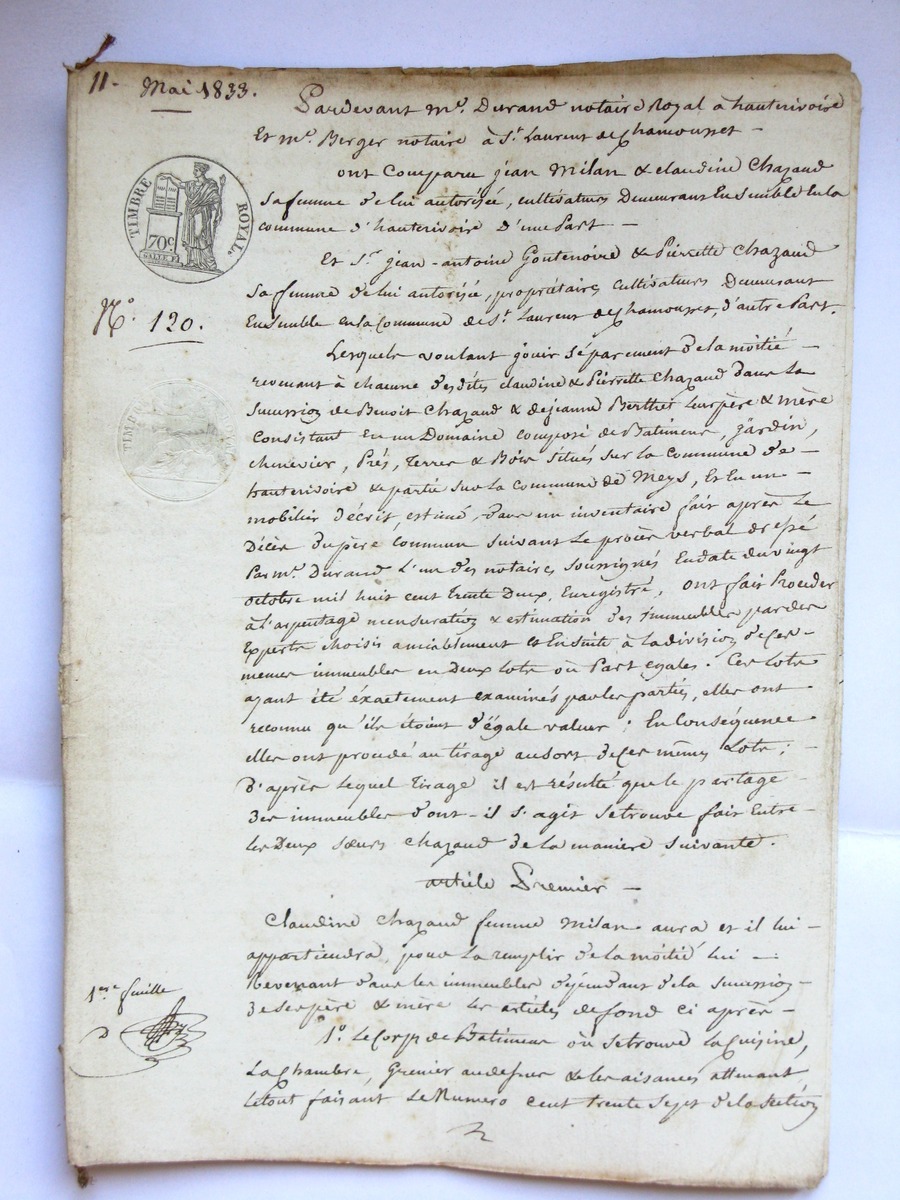 11- Mai 1833.
Pardevant Me. Durand notaire Royal à hauterivoire
Et me. Berger notaire à St. Laurent de Chamousset -
ont Comparu jean Milan & claudine Chazaud
Sa femme de lui autorisée, cultivateurs Demeurans Ensemble En la
commune d'hauterivoire d'une Part -
Et Sr. jean-antoine Goutenoire & Pierrette Chazaud
Sa femme de lui autorisée, propriétaires cultivateurs Demeurant
Ensemble en la Commune de St. Laurent de Chamousset, d'autre Part.
Lesquels voulant jouir séparement de la moitié -
revenant à chacune desdites claudine & Pierrette Chazaud dans La
Succession de Benoit Chazaud & de jeanne Berthet Leurs père & mère
Consistant En un Domaine composé de Batimens, jardin,
chenevier, Prés, Terres & Bois situés sur la commune de -
hauterivoire & partie sur La Commune de Meys, Et En un -
mobilier décrit, estimé, dans un inventaire fait après Le
Décès du père commun suivant Le procès verbal dressé
Par me. Durand L'un des notaires soussignés En date du vingt
octobre mil huit cent trente Deux, Enregistré, ont fait Proceder
à L'arpentage mensuration & estimation des immeubles par des
Experts choisis amiablement et Ensuite à la division de ces -
memes immeubles en Deux Lots ou Part egales. Ces Lots
ayant été éxactement examinés par les parties, elles ont
reconnu qu'ils étoient d'égale valeur; En Conséquence
elles ont procédé au tirage au sort de ces mêmes Lots; -
D'après Lequel Tirage il est résulté que le partage
des immeubles dont-il s'agit se trouve fait Entre -
Les Deux sœurs chazaud de la maniere suivante.
article Premier -
Claudine chazaud femme Milan aura et il lui -
appartiendra, pour La remplir de la moitié lui -
Revenant dans les immeubles dépendans de la succession -
de ses père & mère Les articles de fond ci après -
1o. Le Corps de Batimens où se trouve la cuisine,
La Chambre, Grenier au dessus & les aisances attenant
Le tout faisant Le Numero cent trente sept de la Section
TIMBRE ROYAL
70c.
No. 120.
TIMBRE
1ere feuille